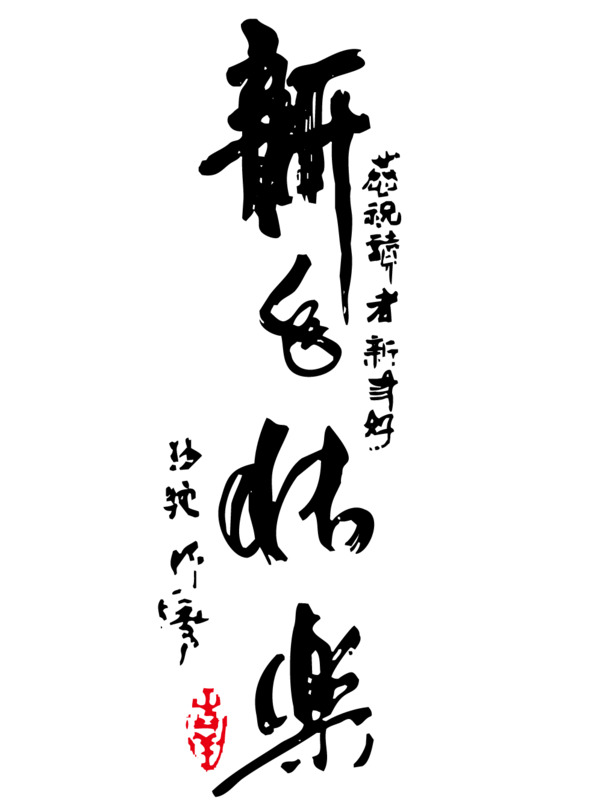 恭祝讀者新年好
新年快樂